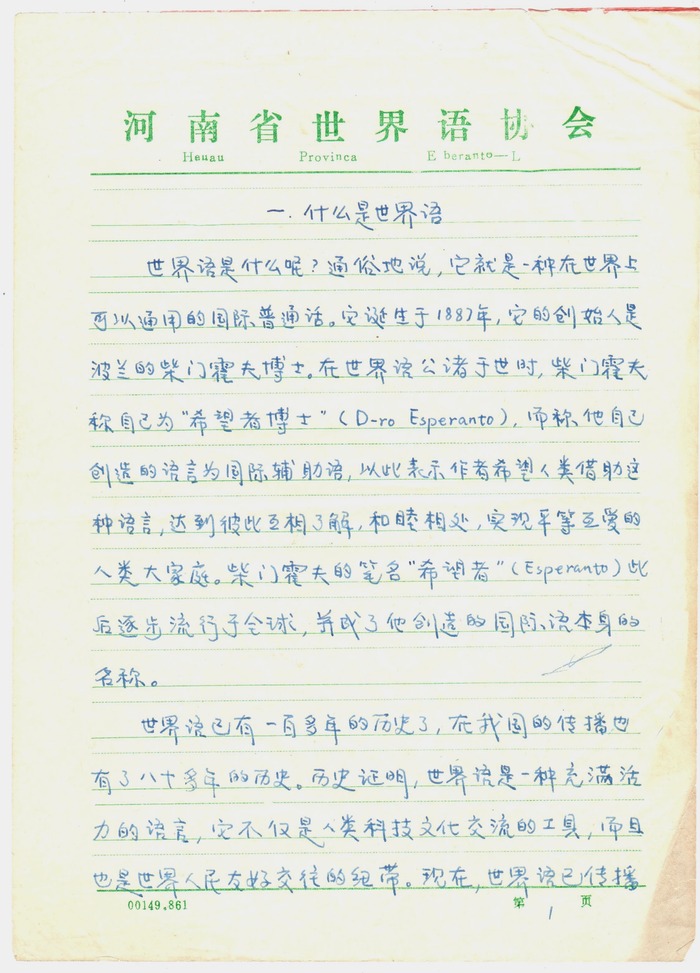 河南省世界语协会
Henau Provinca E beranto—L
一.什么是世界语
世界语是什么呢?通俗地说,它就是一种在世界上
可以通用的国际普通话。它诞生于1887年,它的创始人是
波兰的柴门霍夫博士。在世界语公诸于世时,柴门霍夫
称自己为“希望者博士”(D-ro Esperanto),而称他自己
创造的语言为国际辅助语,以此表示作者希望人类借助这
种语言,达到彼此互相了解,和睦相处,实现平等互爱的
人类大家庭。柴门霍夫的笔名“希望者”(Esperanto)此
后逐步流行于全球,并成了他创造的国际语本身的
名称。
世界语已有一百多年的历史了,在我国的传播也
有了八十多年的历史。历史证明,世界语是一种充满活
力的语言,它不仅是人类科技文化交流的工具,而且
也是世界人民友好交往的纽带。现在,世界语已传播
00149.861 第 1 页